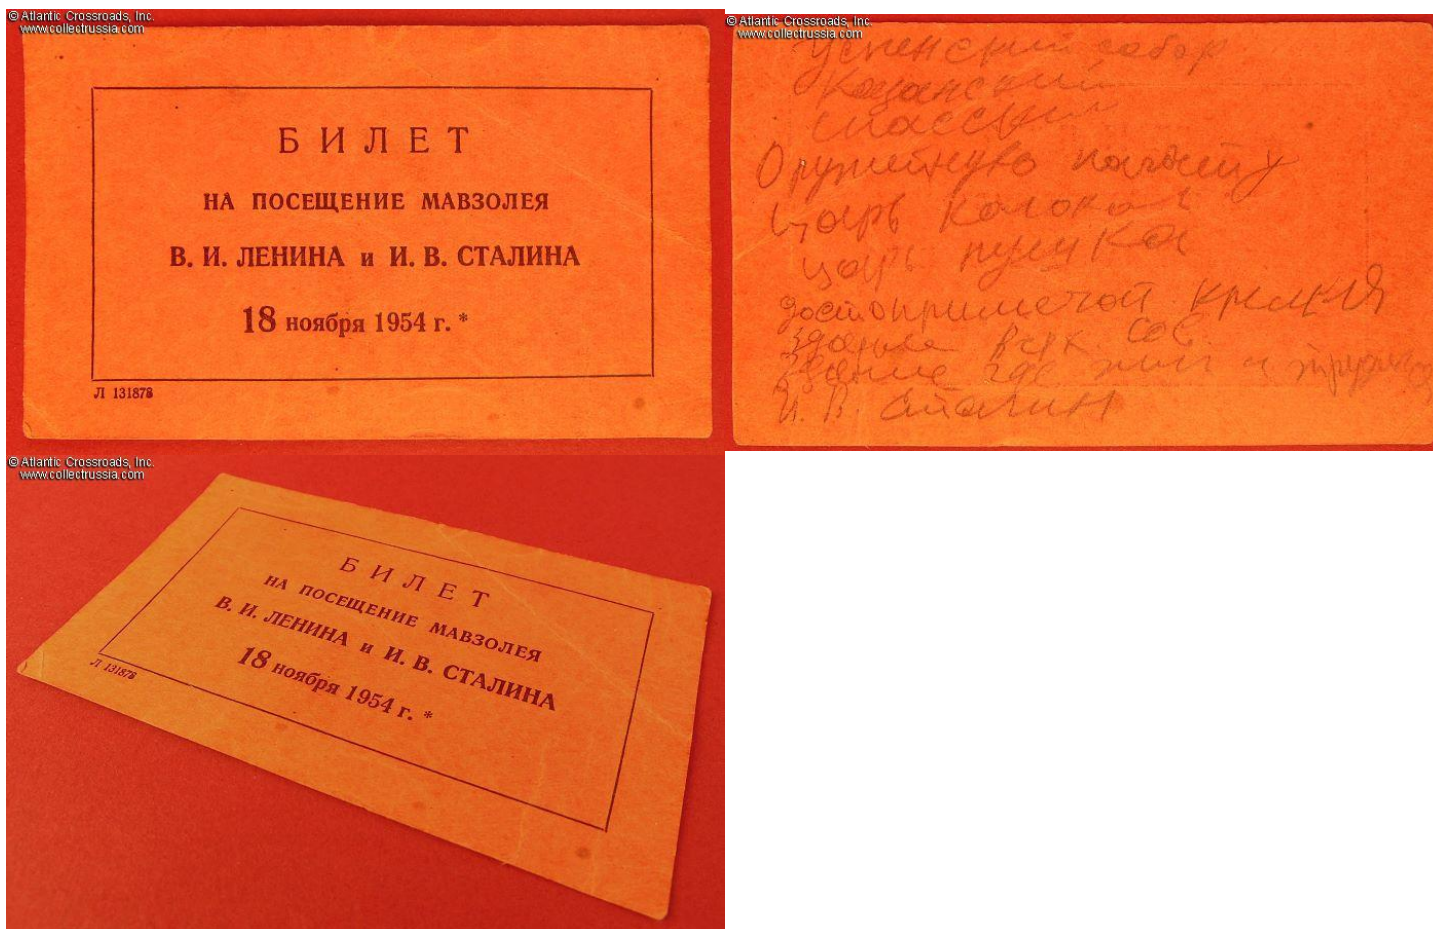 © Atlantic Crossroads, Inc.
www.collectrussia.com
БИЛЕТ
НА ПОСЕЩЕНИЕ МАВЗОЛЕЯ
В. И. ЛЕНИНА и И. В. СТАЛИНА
18 ноября 1954 г. *
Л 131878
© Atlantic Crossroads, Inc.
www.collectrussia.com
Успенский собор
Казанский
Спасский
Оружейную палату
царь колокол
царь пушка
достопримечат Кремля
здание
здание где жил и
И. В. Сталин
© Atlantic Crossroads, Inc.
www.collectrussia.com
БИЛЕТ
НА ПОСЕЩЕНИЕ МАВЗОЛЕЯ
В. И. ЛЕНИНА и И. В. СТАЛИНА
18 ноября 1954 г. *
Л 131878